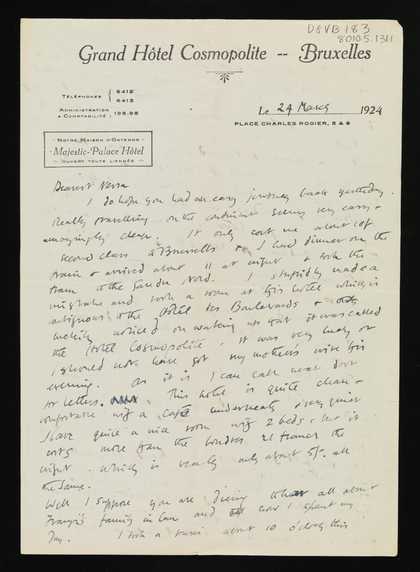 DSVB 183
8010.5.1311
Grand Hôtel Cosmopolite -- Bruxelles
TÉLÉPHONES 6412
6413
ADMINISTRATION & COMPTABILITÉ : 108.98
Le 24 March 1924
PLACE CHARLES ROGIER, 5 & 6
NOTRE MAISON D'OSTENDE
Majestic-Palace Hôtel
OUVERT TOUTE L'ANNÉE
Dearest Nessa
I do hope you had an easy journey back yesterday.
Really travelling on the continent seems very easy &
amazingly cheap. It only cost me about
second class to Bruxelles & I had dinner on the
train & arrived about 11 at night & took the
tram to the Gare du Nord. I stupidly made a
mistake and took a room at this hotel which is
to the Hotel des Boulevards & only
luckily noticed on waking up that it was called
the Hotel Cosmopolite. It was very lucky or
I should not have got my mother's wire this
evening. As it is I can call next door
for letters. This hotel is quite clean &
comfortable with a café underneath & very quiet
I have quite a nice room with 2 beds & but it
costs more than the London 21 francs the
night. which is really only about 5/- all
the same.
Well I suppose you are all about
family in law and how I spent my
day. I took a about 10 o'clock this